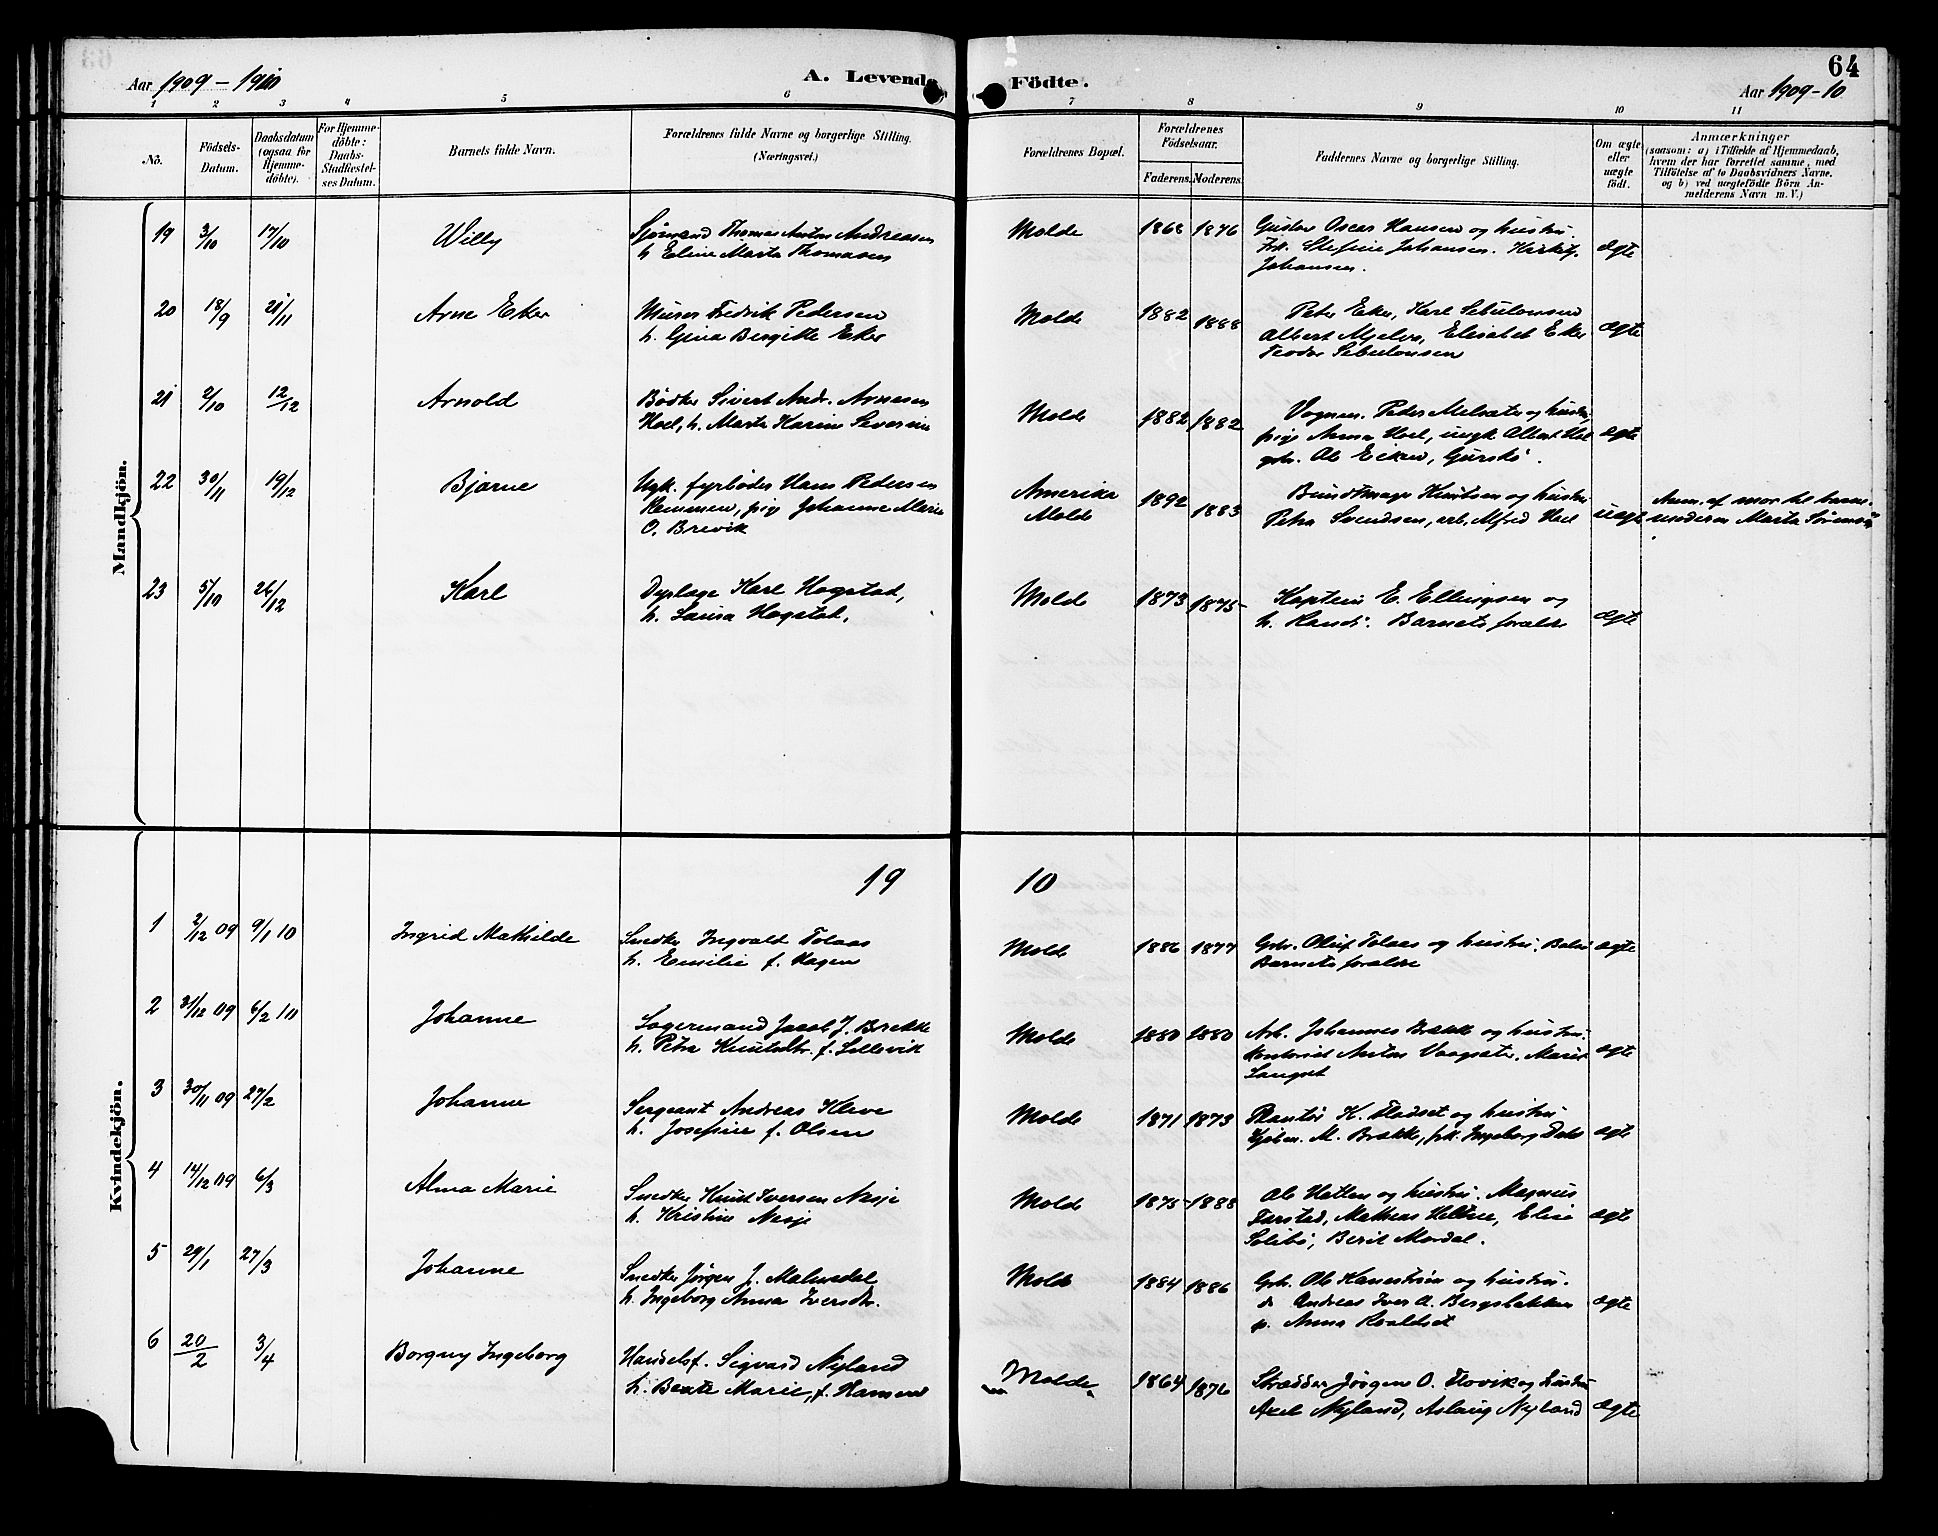 64
Aar 1909 – 1910
A. Levende Födte.
Aar 1909–10
1 2 3 4 5 6 7 8 9 10 11
No.
Födsels-Datum.
Daabsdatum (ogsaa for Hjemme-döbte).
For Hjemme-döbte: Daabs-Stadfæstel-ses Datum.
Barnets fulde Navn.
Forældrenes fulde Navne og borgerlige Stilling. (Næringsvei.)
Forældrenes Bopæl.
Forældrenes Födselsaar.
Faderens. Moderens.
Faddernes Navne og borgerlige Stilling.
Om ægte eller uægte födt.
Anmærkninger
(saasom: a) i Tilfælde af Hjemmedaab, hvem der har forrettet samme, med Tilföielse af to Daabsvidners Navne, og b) ved uægtefödte Börn An-melderens Navn m. V.)
Mandkjön.
19 3/10 17/10 Willy Sjömand Thomas Anton Andreasen Molde 1868 1876 Gustav Oscar Hansen og hustru.
h. Eline Marta Thomasen Frk. Stefine Johansen. ægte
Johansen.
20 18/9 21/11 Arne Eker Murer Fredrik Pedersen Molde 1882 1888 Peter Eker, Karl Sebulonsen
h. Gina Bergitte Eker Albert Mjelve, Elisabet Eker ægte
Teodor Sebulonsen
21 2/10 12/12 Arnold Bödker Sivert Andr. Arnesen Molde 1882 1882 Vognm. Peder Melsæter og hustru,
Hoel, h. Marta Karine Severine pige Anna Hoel, ungk. Albert Hoel ægte
gbr. Ole Eiken, Gurskö.
22 30/11 19/12 Bjarne Ugk. fyrböder Hans Pedersen Amerika 1892 1883 Bundtmager Knutsen og hustru
Hemmen, pige Johanne Marie Molde Petra Svendsen, arb. Alfred Hoel uægte Anm. af mor til barne-
O. Brevik moderen Marta Sörensen
23 5/10 26/12 Karl Dyrlæge Karl Hogstad, Molde 1873 1875 Kaptein E. Ellingsen og
h. Laura Hogstad. h. Randi. Barnets forældre ægte
Kvindekjön.
19 10
1 2/12 09 9/1 10 Ingrid Mathilde Snedker Ingvald Tolaas Molde 1886 1877 Gbr. Oluf Tolaas og hustru. ægte
h. Emilie f. Hagen Barnets forældre
2 31/12 09 6/2 10 Johanne Lagermand Jacob J. Brekke Molde 1880 1880 Arb. Johannes Brekk og hustru.
h. Petra Knutsdtr. f. Sollevik Kontorist Anton Vaagsæter. Marie ægte
Langset
3 30/11 09 27/2 Johanne Sergeant Andreas Kleve Molde 1871 1873 H. Fladset og hustru
h. Josefine f. Olsen Kjöbm. M. Brække, frk. Ingeborg Dahl ægte
4 14/12 09 6/3 Alma Marie Snedker Knut Iversen Nesje Molde 1875 1888 Ole Hatlen og hustru. Magnus
h. Kristine Nesje Farstad, Mathias Heltne, Elise ægte
Solibö, Berit Mordal.
5 29/1 27/3 Johanne Snedker Jörgen J. Malmedal Molde 1884 1886 Gbr. Ole Hanestrøm og hustru.
h. Ingeborg Anna Iversdtr. do Andreas Iver A. Bergsbakken ægte
p. Anna Kvaldset
6 20/2 3/4 Borgny Ingeborg Handelsf. Sigvard Nyland „ Molde „ 1864 1876 Strædder Jörgen O. Flovik og hustru
h. Beate Marie, f. Hansen Axel Nyland, Aslaug Nyland ægte